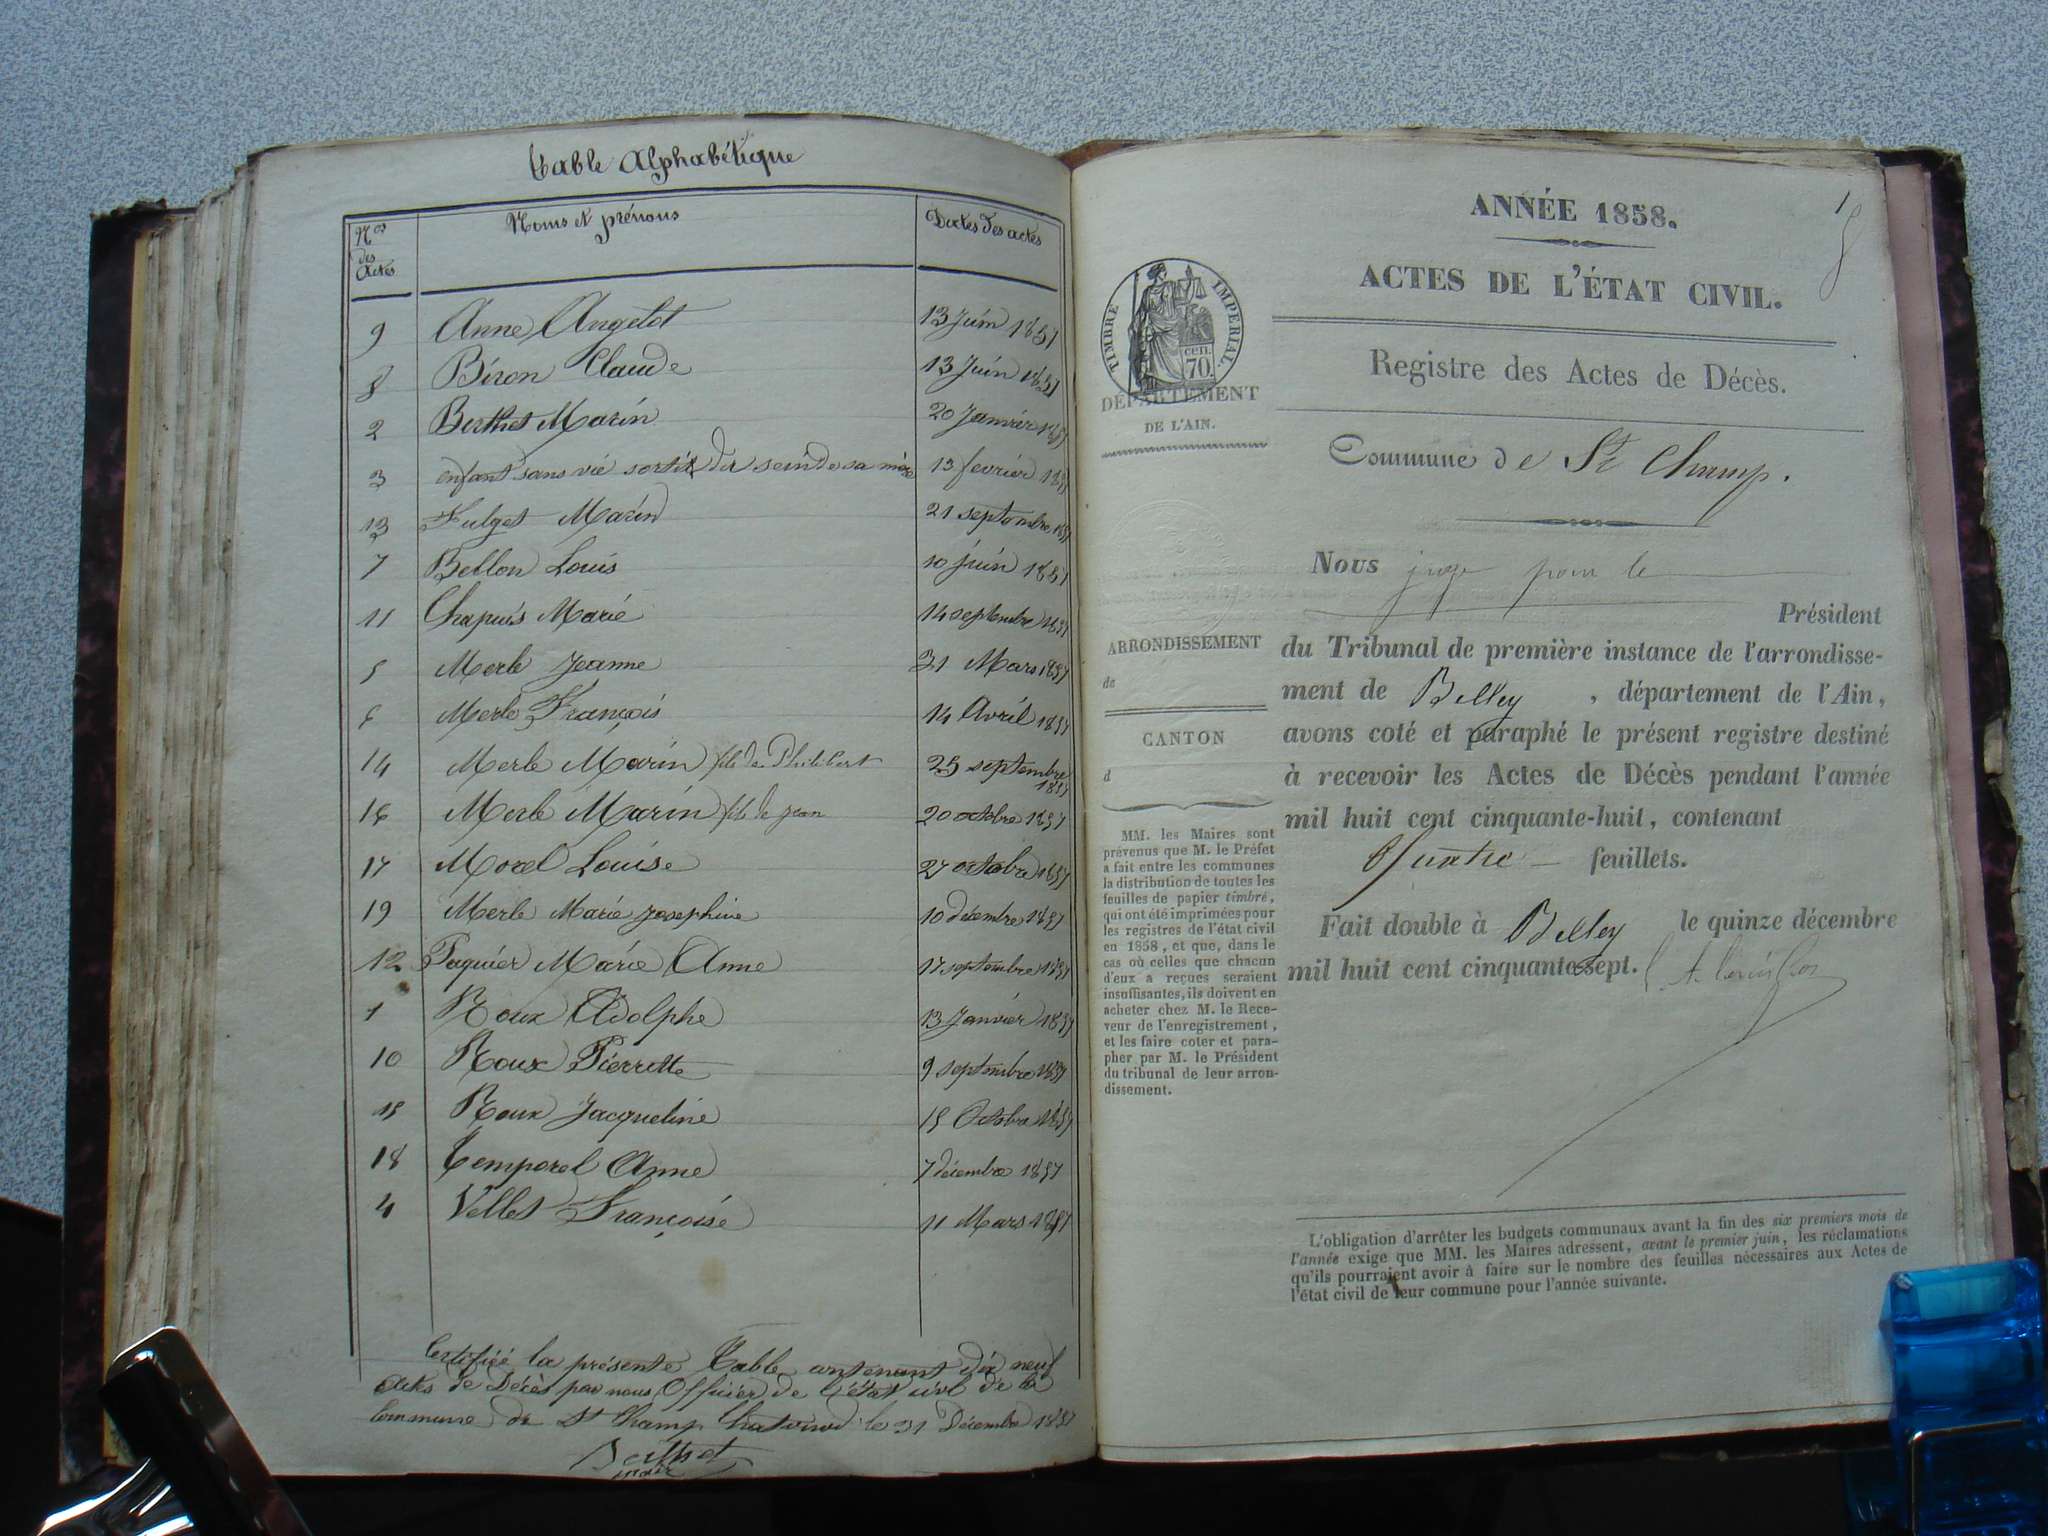 Table Alphabétique
Nos des Actes Noms et prénoms Dates des actes
9 Anne Angelot 13 Juin 1857
8 Biron Claude 13 Juin 1857
2 Berthet Marin 20 Janvier 1857
3 enfant sans vie sortit du sein de sa mère 13 fevrier 1857
13 Fulget Marin 21 septembre 1857
7 Bellon Louis 10 juin 1857
11 Chapuis Marie 14 septembre 1857
5 Merle Jeanne 31 Mars 1857
6 Merle François 14 Avril 1857
14 Merle Marin fils de Philibert 25 septembre 1857
16 Merle Marin fils de jean 20 octobre 1857
17 Morel Louise 27 octobre 1857
19 Merle Marie josephine 10 décembre 1857
12 Paquier Marie Anne 17 septembre 1857
1 Roux Adolphe 13 Janvier 1857
10 Roux Pierrette 9 septembre 1857
15 Roux Jacqueline 15 Octobre 1857
18 Temporel Anne 7 décembre 1857
4 Vellet Françoise 11 Mars 1857
Certifié la présente Table contenant dix neuf
actes de Décès par nous Officier de l'état civil de la
Commune de St Champ Chatonod le 31 Décembre 1857
Berthet
maire
1
ANNÉE 1858.
ACTES DE L'ÉTAT CIVIL.
TIMBRE IMPERIAL.
70. cen.
DÉPARTEMENT
DE L'AIN.
Registre des Actes de Décès.
Commune de St Champ.
Nous juge pour le
Président
du Tribunal de première instance de l'arrondisse-
ment de Belley , département de l'Ain,
avons coté et paraphé le présent registre destiné
à recevoir les Actes de Décès pendant l'année
mil huit cent cinquante-huit, contenant
Quatre feuillets.
Fait double à Belley le quinze décembre
mil huit cent cinquante-sept.
ARRONDISSEMENT
de
CANTON
d
MM. les Maires sont
prévenus que M. le Préfet
a fait entre les communes
la distribution de toutes les
feuilles de papier timbré,
qui ont été imprimées pour
les registres de l'état civil
en 1858, et que, dans le
cas où celles que chacun
d'eux a reçues seraient
insuffisantes, ils doivent en
acheter chez M. le Rece-
veur de l'enregistrement,
et les faire coter et para-
pher par M. le Président
du tribunal de leur arron-
dissement.
L'obligation d'arrêter les budgets communaux avant la fin des six premiers mois de
l'année exige que MM. les Maires adressent, avant le premier juin, les réclamations
qu'ils pourraient avoir à faire sur le nombre des feuilles nécessaires aux Actes de
l'état civil de leur commune pour l'année suivante.